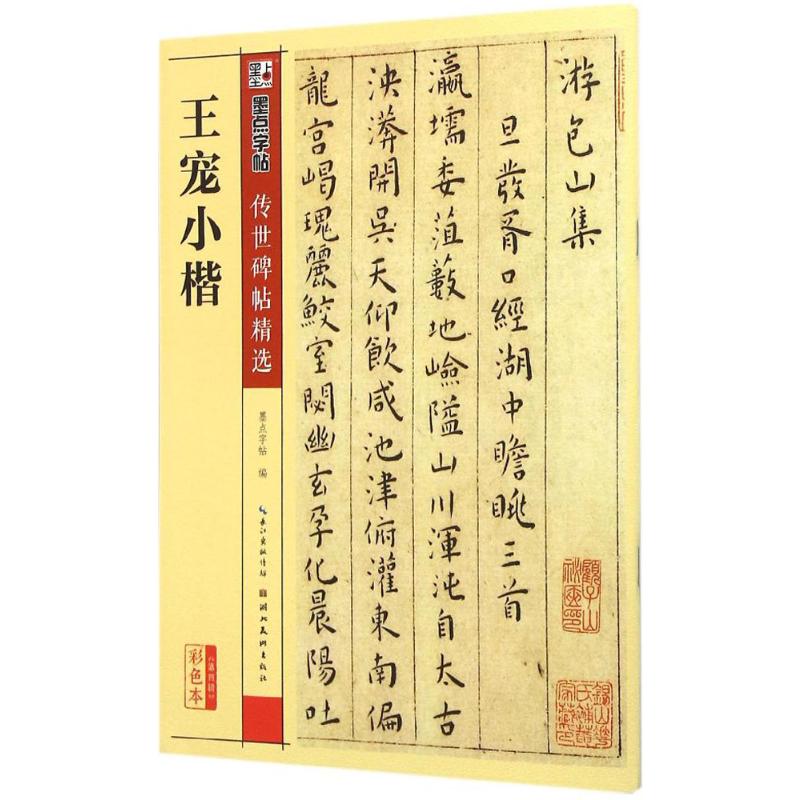 王宠小楷
墨点
墨点字帖
传世碑帖精选
墨点字帖 编
长江出版传媒
湖北美术出版社
彩色本
(第四辑)
游包山集
旦發胥口經湖中瞻眺三首
瀛壖委菹藪地嶮隘山川渾沌自太古
泱漭開吳天仰飲咸池津俯灌東南偏
龍宮嵑瑰麗鮫室閟幽玄孕化晨陽吐
顧子山
秘匧印